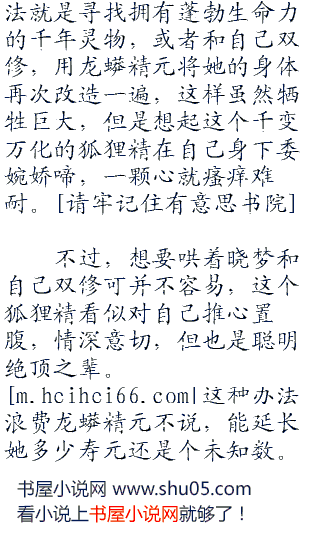 法就是寻找拥有蓬勃生命力
的千年灵物，或者和自己双
修，用龙蟒精元将她的身体
再次改造一遍，这样虽然牺
牲巨大，但是想起这个千变
万化的狐狸精在自己身下委
婉娇啼，一颗心就瘙痒难
耐。[请牢记住有意思书院]
不过，想要哄着晓梦和
自己双修可并不容易，这个
狐狸精看似对自己推心置
腹，情深意切，但也是聪明
绝顶之辈。
[m.hcihci66.com|这种办法
浪费龙蟒精元不说，能延长
她多少寿元还是个未知数。
书屋小说网 www.shu05.com
看小说上书屋小说网就够了！